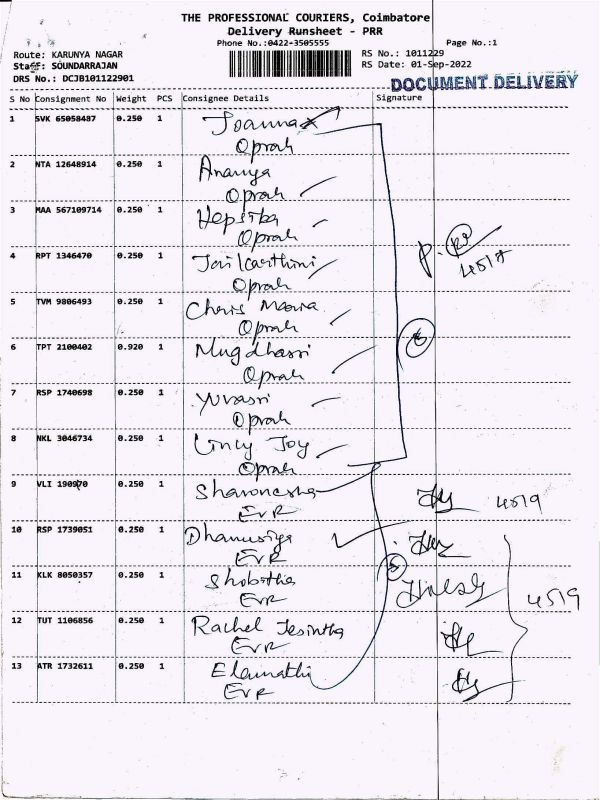 THE PROFESSIONAL COURIERS, Coimbatore
Delivery Runsheet - PRR
Phone No.:0422-3505555
Page No.:1
Route: KARUNYA NAGAR
Staff: SOUNDARRAJAN
DRS No.: DCJB101122901
RS No.: 1011229
RS Date: 01-Sep-2022
DOCUMENT DELIVERY
S No Consignment No Weight PCS Consignee Details Signature
1 SVK 65058487 0.250 1 Joanna
Oprah
2 NTA 12648914 0.250 1 Ananya
Oprah
3 MAA 567109714 0.250 1 Hepsiba
Oprah
4 RPT 1346470 0.250 1
Oprah
5 TVM 9806493 0.250 1 Chris Maria
Oprah
6 TPT 2100402 0.920 1 Mugdhasri
Oprah
7 RSP 1740698 0.250 1 Yuvasri
Oprah
8 NKL 3046734 0.250 1 Lincy Joy
Oprah
9 VLI 190970 0.250 1
EVR
4519
10 RSP 1739051 0.250 1 Dhanusiya
EVR
11 KLK 8050357 0.250 1 Shobitha
EVR
4519
12 TUT 1106856 0.250 1 Rachel Jesintha
EVR
13 ATR 1732611 0.250 1 Elamathi
EVR